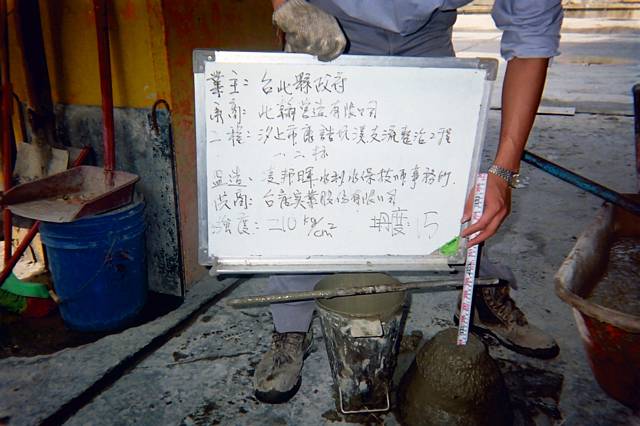 業主：台北縣政府
承商：北翰營造有限公司
工程：汐止市康誥坑溪支流整治工程
一、二標
監造：凌邦暉水利水保技師事務所
廠商：台庭實業股份有限公司
強度：210 kg/cm² 坍度 15